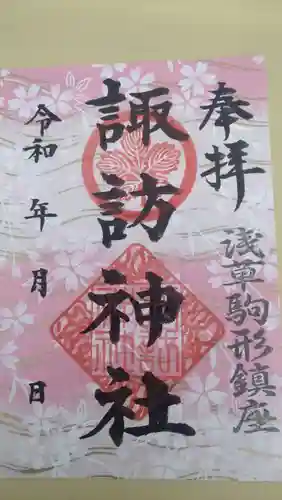 奉拝
浅草駒形鎮座
諏訪神社
令和 年 月 日